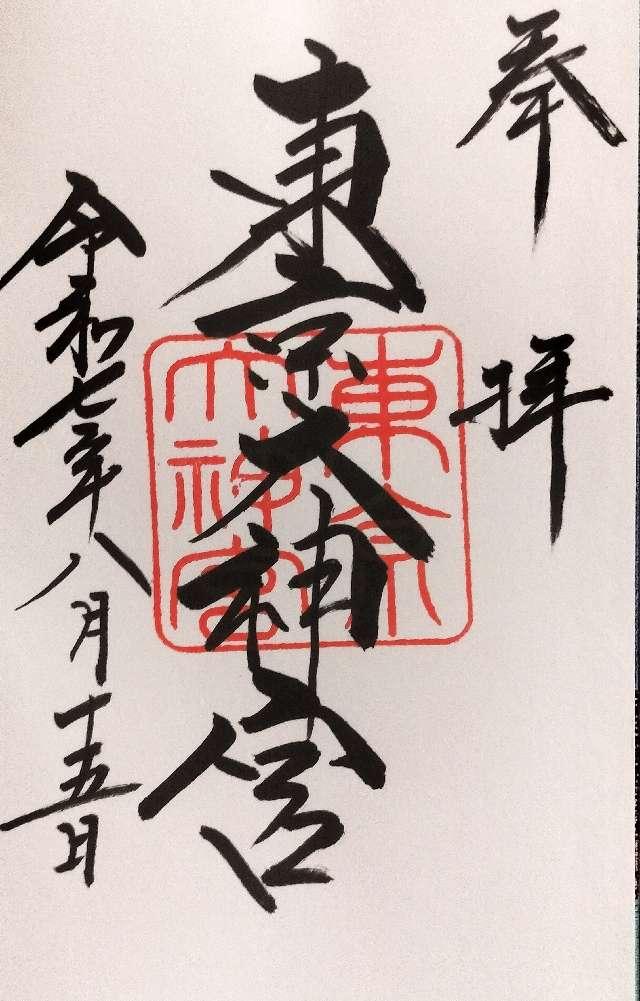 奉拝
東京大神宮
東京
大神宮
令和七年八月十五日